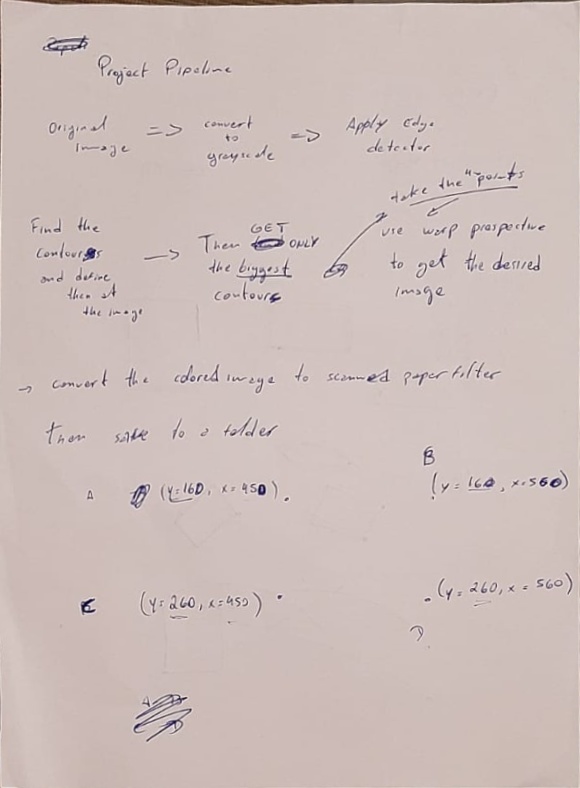 Project Pipeline
Original image => convert to grayscale => Apply Edge detector
Find the
contours
and define
then at
the image
→
Then GET ONLY
the biggest
contours
take the 4 points
use warp prespective
to get the desired
image
→ convert the colored image to scanned paper filter
then save to a folder
A (y=160, x=450).
B
(y=160, x=560)
C (y=260, x=450) .
. (y=260, x=560)
D